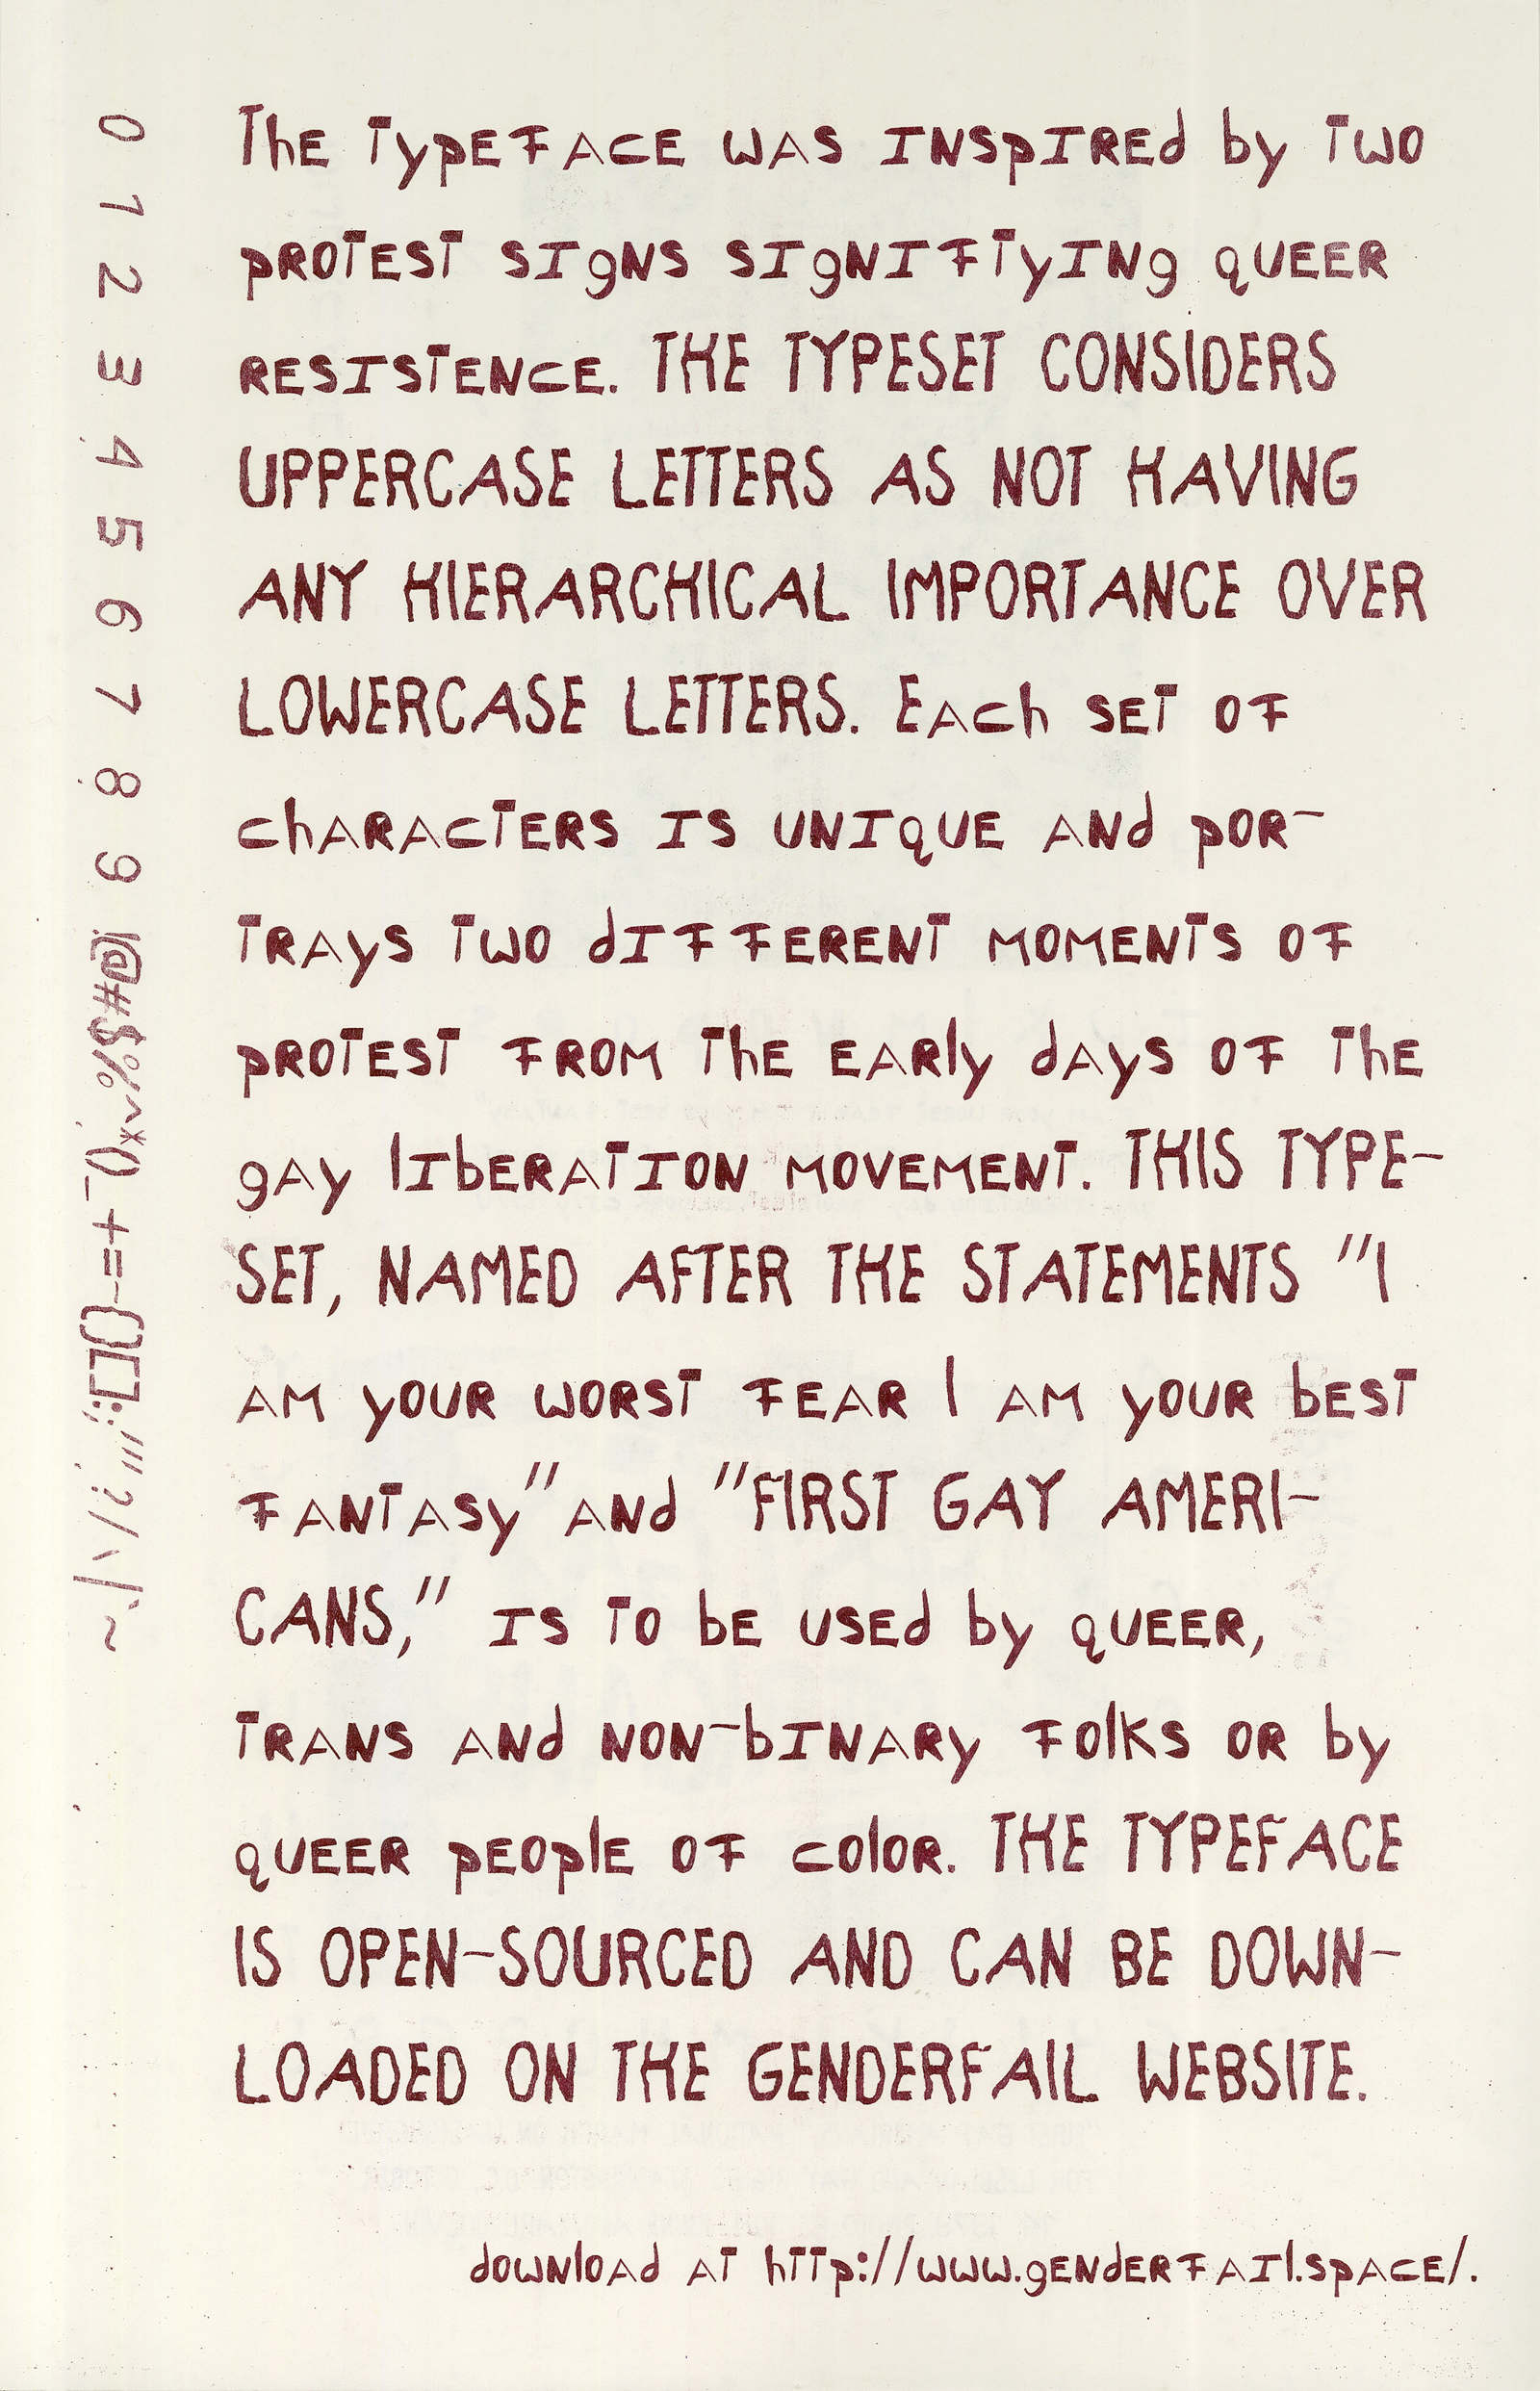 The typeface was inspired by two
protest signs signiftying queer
resistence. THE TYPESET CONSIDERS
UPPERCASE LETTERS AS NOT HAVING
ANY HIERARCHICAL IMPORTANCE OVER
LOWERCASE LETTERS. Each set of
characters is unique and por-
trays two different moments of
protest from the early days of the
gay liberation movement. THIS TYPE-
SET, NAMED AFTER THE STATEMENTS "I
am your worst fear I am your best
fantasy"and "FIRST GAY AMERI-
CANS," is to be used by queer,
trans and non-binary folks or by
queer people of color. THE TYPEFACE
IS OPEN-SOURCED AND CAN BE DOWN-
LOADED ON THE GENDERFAIL WEBSITE.
download at http://www.genderfail.space/.
0 1 2 3 4 5 6 7 8 9 !@#$%^*()_+=-{}[]:;'"?/\|`~